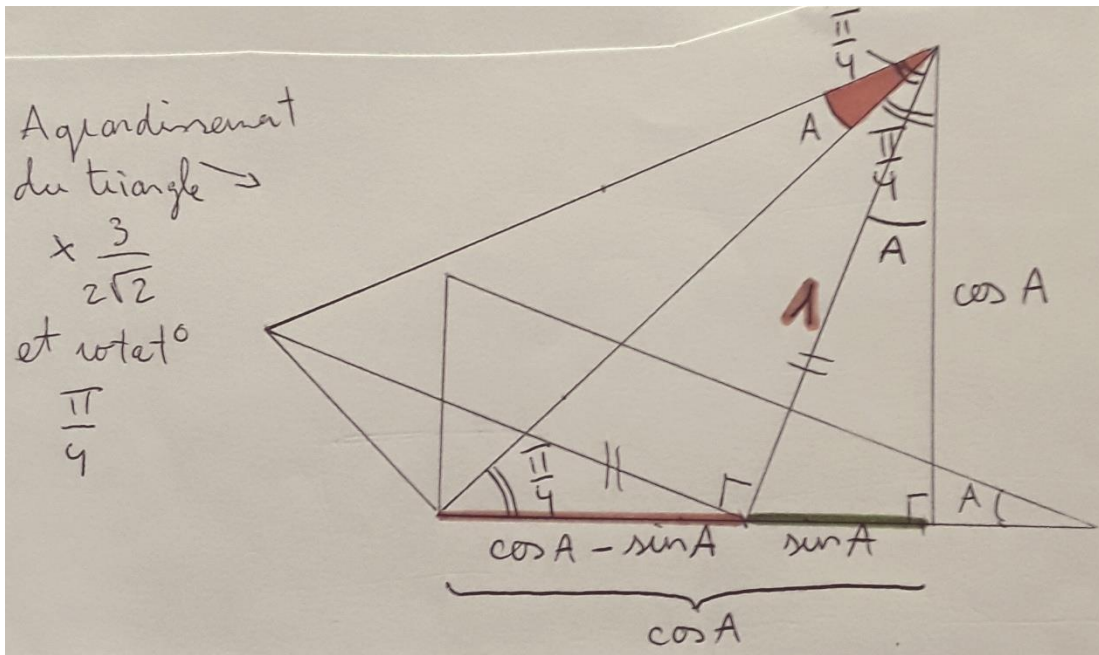 Agrandissement
du triangle →
× 3/(2√2)
et rotat°
π/4
π/4
A
π/4
A
cos A
1
π/4
A
cos A – sin A
sin A
cos A